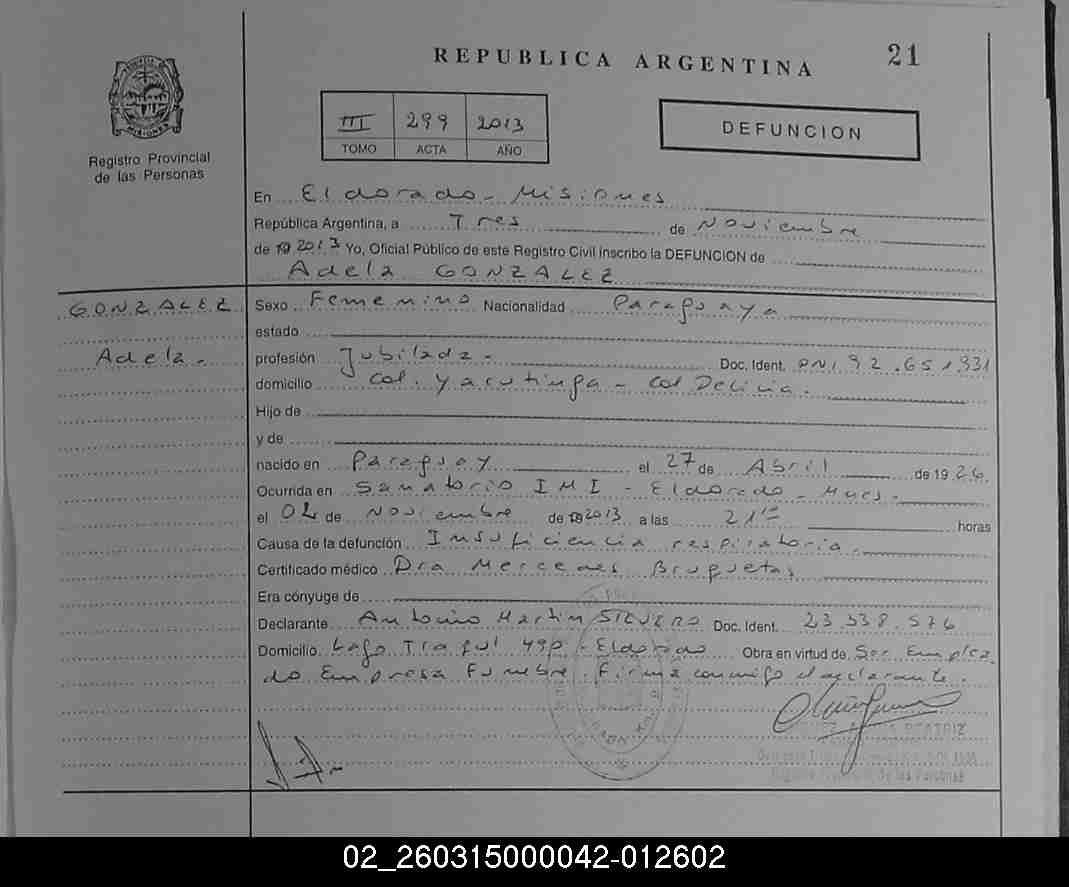 REPUBLICA ARGENTINA
21
III 299 2013
TOMO ACTA AÑO
DEFUNCION
Registro Provincial
de las Personas
En Eldorado - Misiones
República Argentina, a Tres de Noviembre
de 19 2013 Yo, Oficial Público de este Registro Civil inscribo la DEFUNCION de
Adela GONZALEZ
GONZALEZ
Adela.
Sexo Femenino Nacionalidad Paraguaya
estado
profesión Jubilada. Doc. Ident. DNI 92.651931
domicilio Col. Yacutinga - Col Delicia.
Hijo de
y de
nacido en Paraguay el 27 de Abril de 1926.
Ocurrida en Sanatorio IMI - Eldorado - Mnes.
el 02 de Noviembre de 19 2013 a las 21 horas
Causa de la defunción Insuficiencia respiratoria.
Certificado médico Dra Mercedes Bruquetas
Era cónyuge de
Declarante Antonio Martin SIEVERS Doc. Ident. 23 338.576
Domicilio Lago 490 - Eldorado Obra en virtud de Ser Emplea
do Empresa Funebre. Firma conmigo el declarante.
BEATRIZ
Registro Provincial de las Personas
02_260315000042-012602